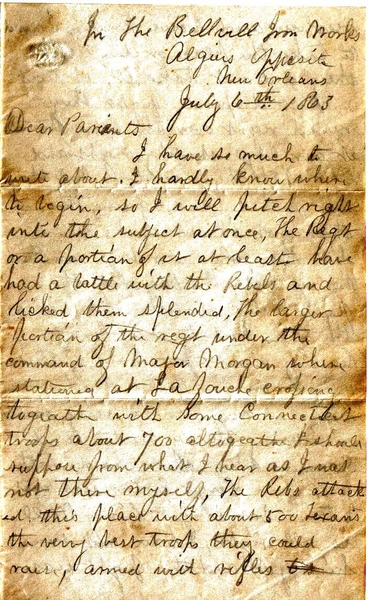 In The Bellvill Iron Works
Algiers Opposite
New Orleans
July 6th 1863
Dear Parients
I have so much to
write about. I hardly know where
to begin, so I will pitch right
into the subject at once, The Regt
or a portian of it at least have
had a battle with the Rebels and
licked them splendid, The larger
portian of the regt under the
command of Major Morgan where
stationed at La Fouche crossing
togeather with some Connecticut
troops about 700 altogeather I should
suppose from what I hear as I was
not there myself, The Rebs attack
ed this place with about 500 Texans
the very best troops they could
raise, armed with rifles